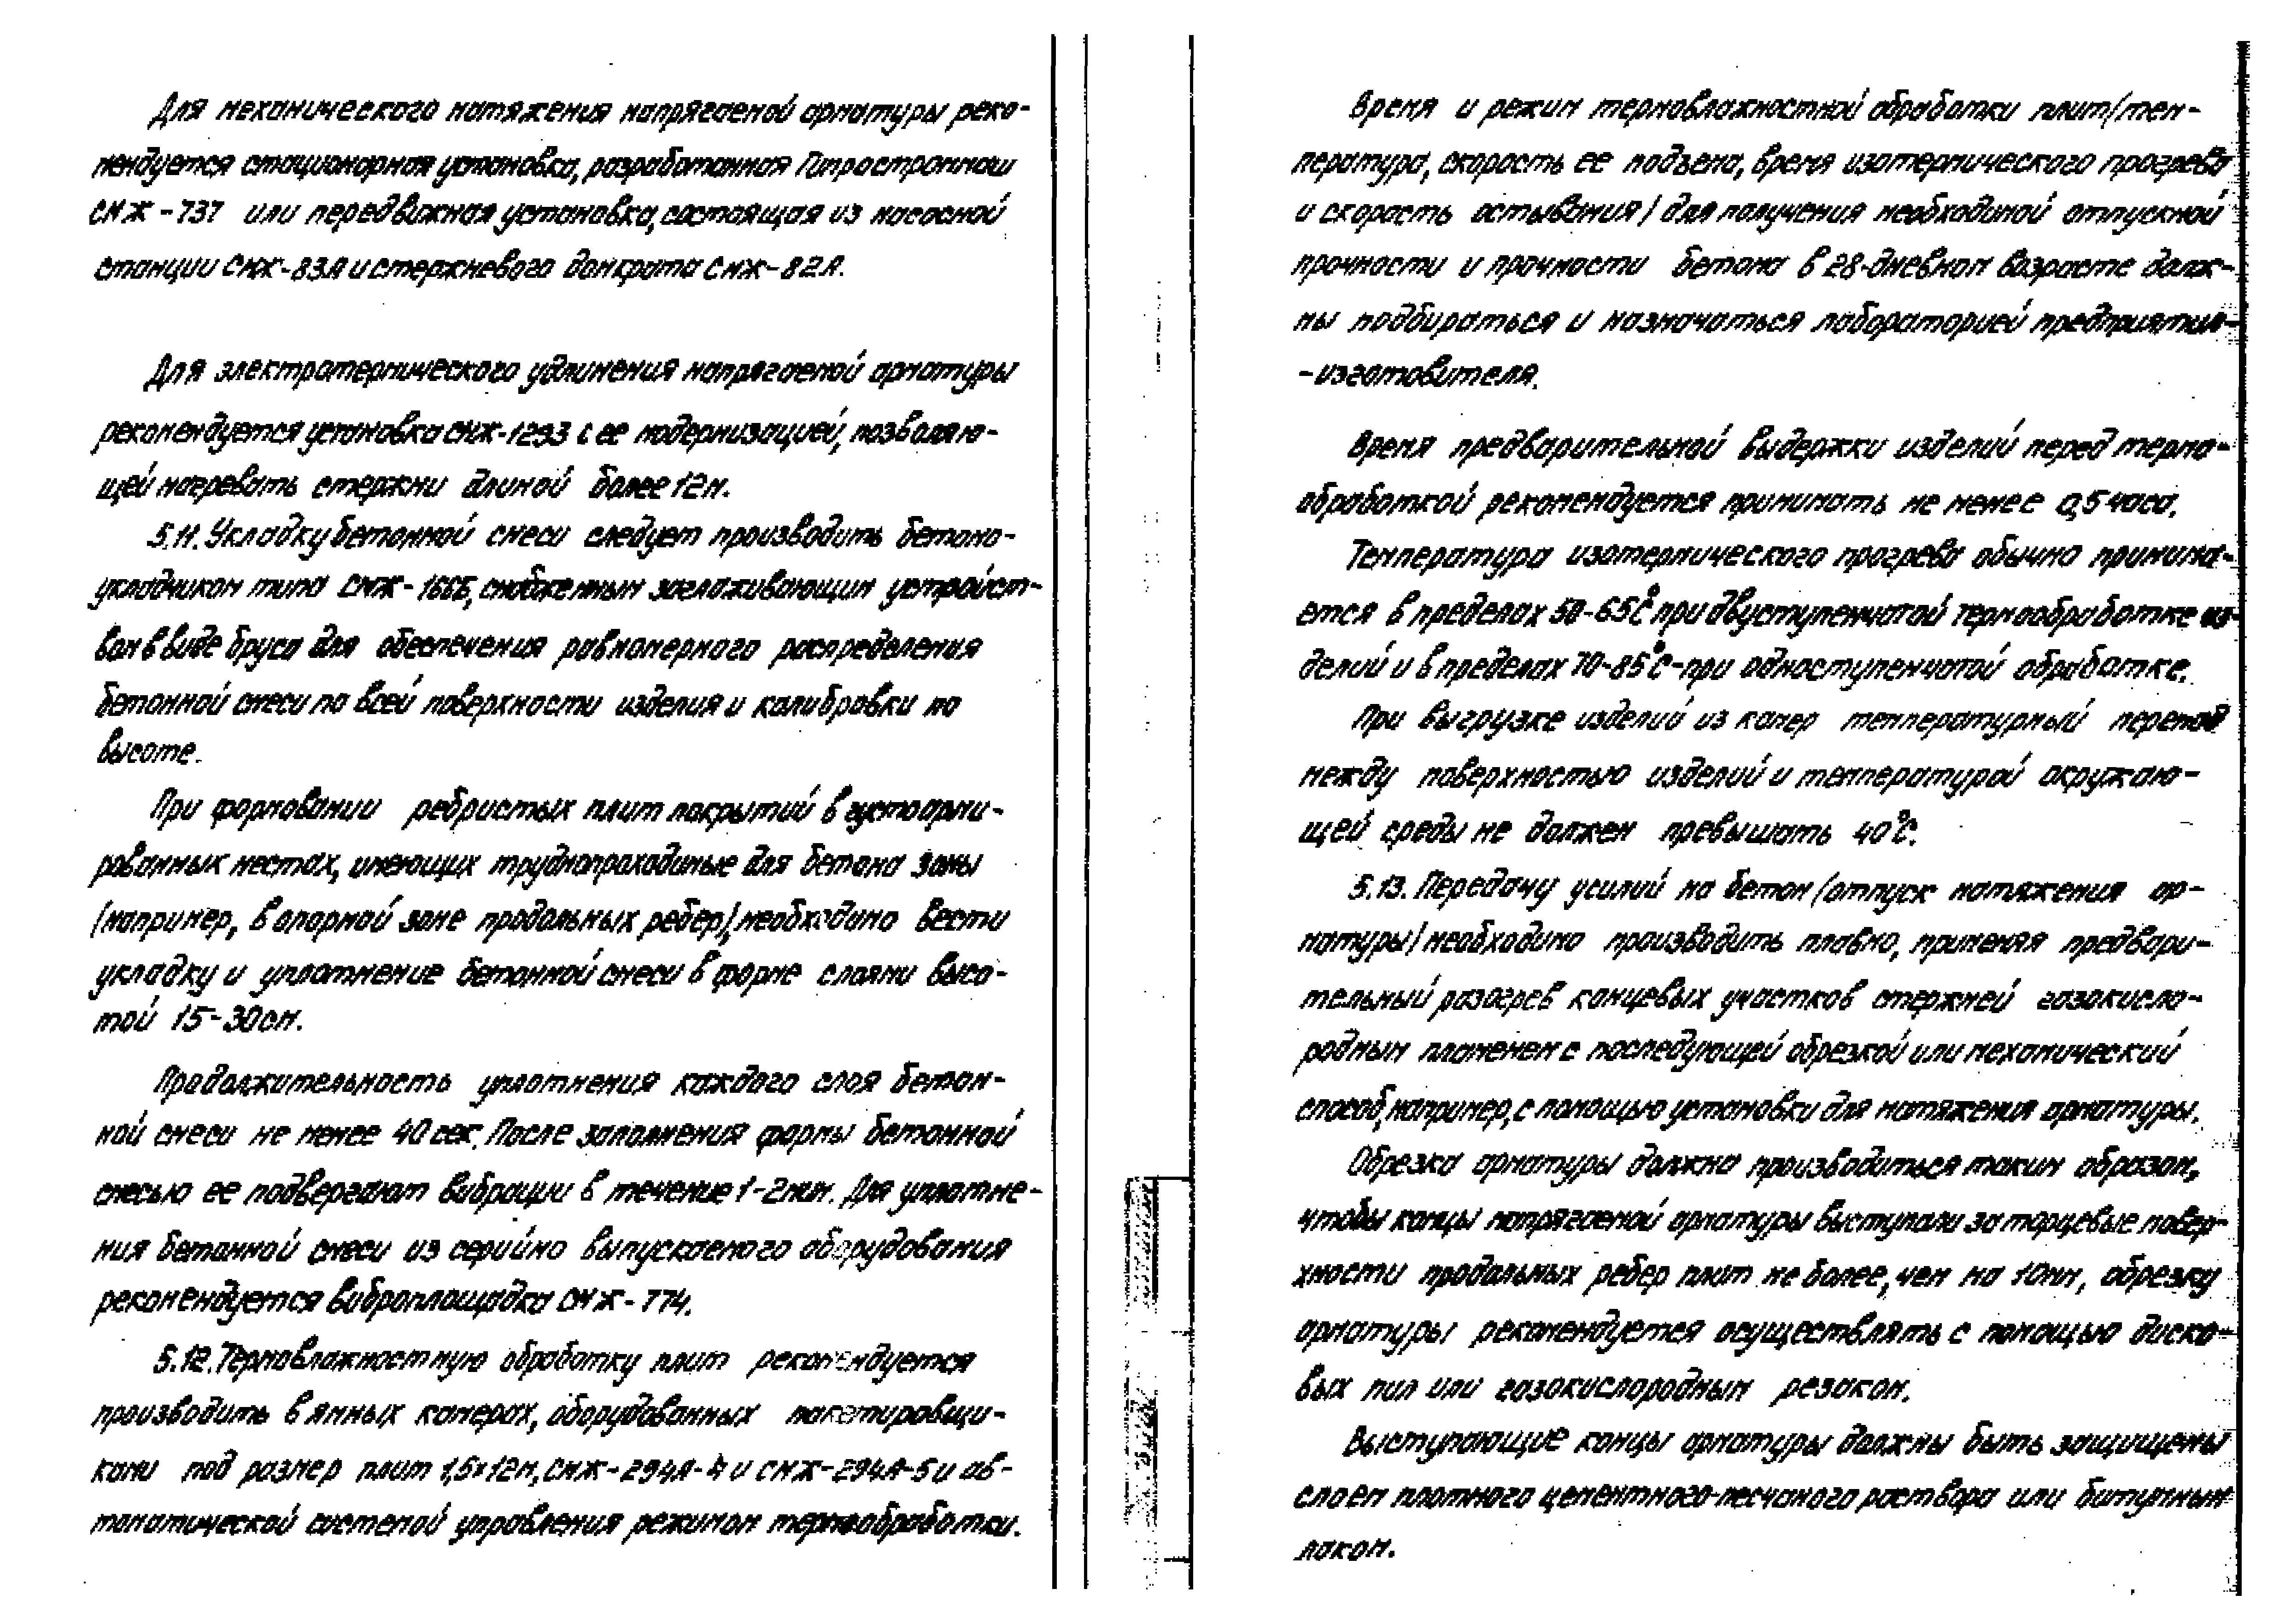 Для механического натяжения напрягаемой арматуры реко-
мендуется стационарная установка, разработанная Гипростроммаш
СМЖ-737 или передвижная установка, состоящая из насосной
станции СМЖ-83А и стержневого домкрата СМЖ-82А.
Для электротермического удлинения напрягаемой арматуры
рекомендуется установка СМЖ-1293 с ее модернизацией, позволяю-
щей нагревать стержни длиной более 12м.
5.11. Укладку бетонной смеси следует производить бетоно-
укладчиком типа СМЖ-166Б, снабженным заглаживающим устройст-
вом в виде бруса для обеспечения равномерного распределения
бетонной смеси по всей поверхности изделия и калибровки по
высоте.
При формовании ребристых плит покрытий в густоарми-
рованных местах, имеющих труднопроходимые для бетона зоны
/например, в опорной зоне продольных ребер/, необходимо вести
укладку и уплотнение бетонной смеси в форме слоями высо-
той 15-30см.
Продолжительность уплотнения каждого слоя бетон-
ной смеси не менее 40 сек. После заполнения формы бетонной
смесью ее подвергают вибрации в течение 1-2мин. Для уплотне-
ния бетонной смеси из серийно выпускаемого оборудования
рекомендуется виброплощадка СМЖ-774.
5.12. Термовлажностную обработку плит рекомендуется
производить в ямных камерах, оборудованных пакетировщи-
ками под размер плит 1,5×12м, СМЖ-294А-4 и СМЖ-294А-5 и ав-
томатической системой управления режимом термообработки.
Время и режим термовлажностной обработки плит/тем-
пература, скорость ее подъема, время изотермического прогрева
и скорость остывания/ для получения необходимой отпускной
прочности и прочности бетона в 28-дневном возрасте долж-
ны подбираться и назначаться лабораторией предприятия-
-изготовителя.
Время предварительной выдержки изделий перед термо-
обработкой рекомендуется принимать не менее 0,5 часа.
Температура изотермического прогрева обычно принима-
ется в пределах 50-65°С при двуступенчатой термообработке из-
делий и в пределах 70-85°С-при одноступенчатой обработке.
При выгрузке изделий из камер температурный перепад
между поверхностью изделий и температурой окружаю-
щей среды не должен превышать 40°С.
5.13. Передачу усилий на бетон /отпуск натяжения ар-
матуры/ необходимо производить плавно, применяя предвари-
тельный разогрев концевых участков стержней газокисло-
родным пламенем с последующей обрезкой или механический
способ, например, с помощью установки для натяжения арматуры.
Обрезка арматуры должна производиться таким образом,
чтобы концы напрягаемой арматуры выступали за торцевые повер-
хности продольных ребер плит не более, чем на 10мм, обрезку
арматуры рекомендуется осуществлять с помощью диско-
вых пил или газокислородным резаком.
Выступающие концы арматуры должны быть защищены
слоем плотного цементного-песчаного раствора или битумным
лаком.